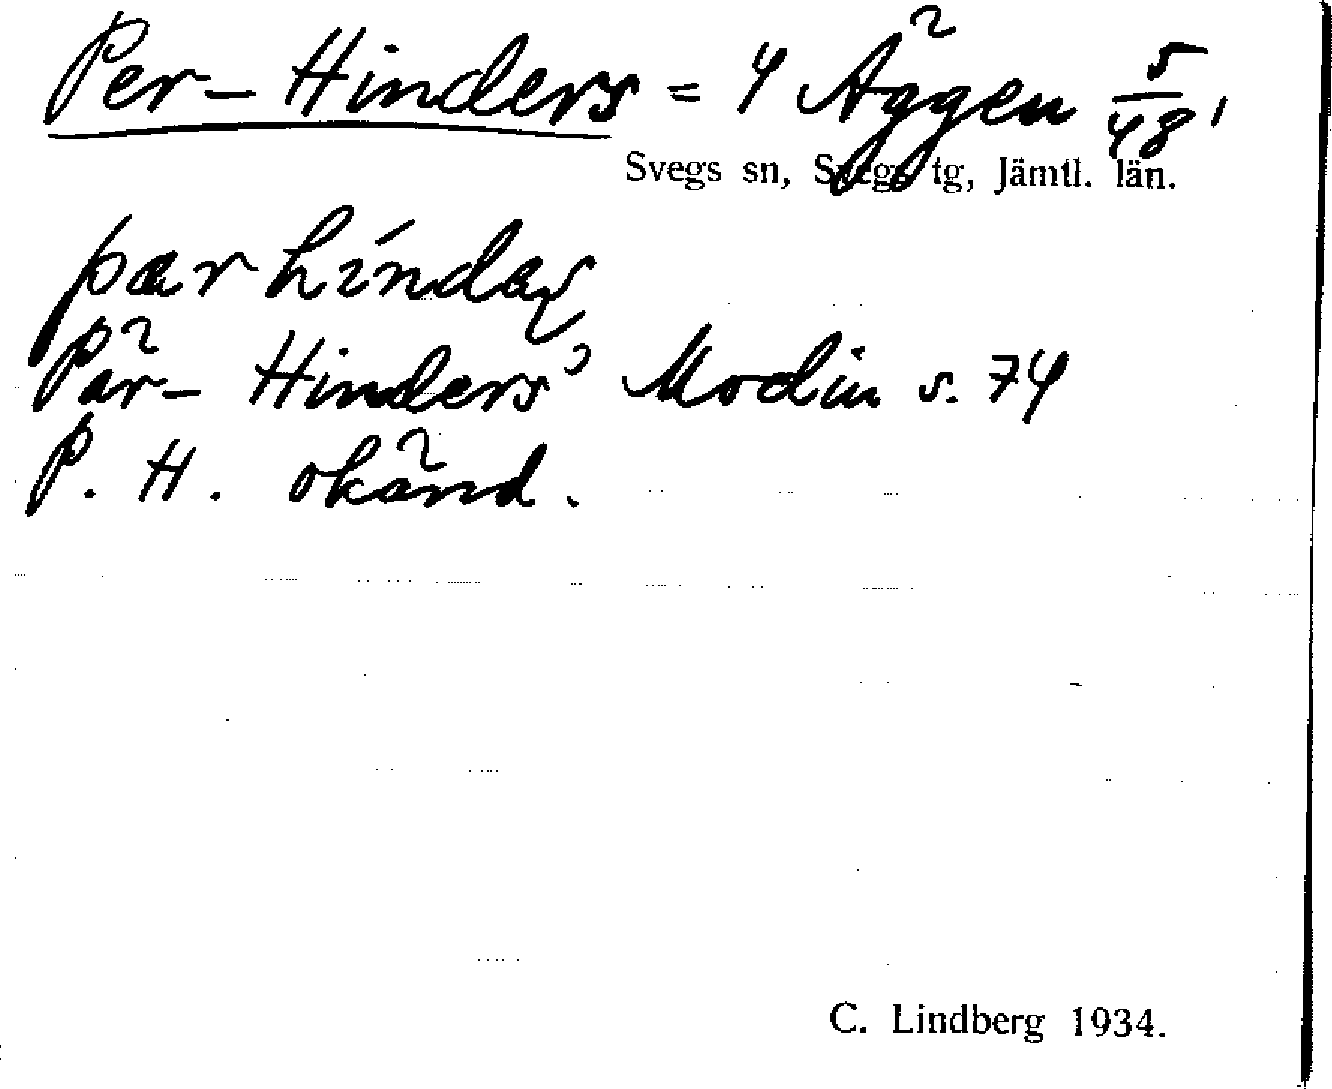 Per-Hinders = 4 Äggen 5/48,
Svegs sn, Svegs tg, Jämtl. län.
pær hìndaʂ
Pär-Hinders' Modin s. 74
P. H. okänd.
C. Lindberg 1934.